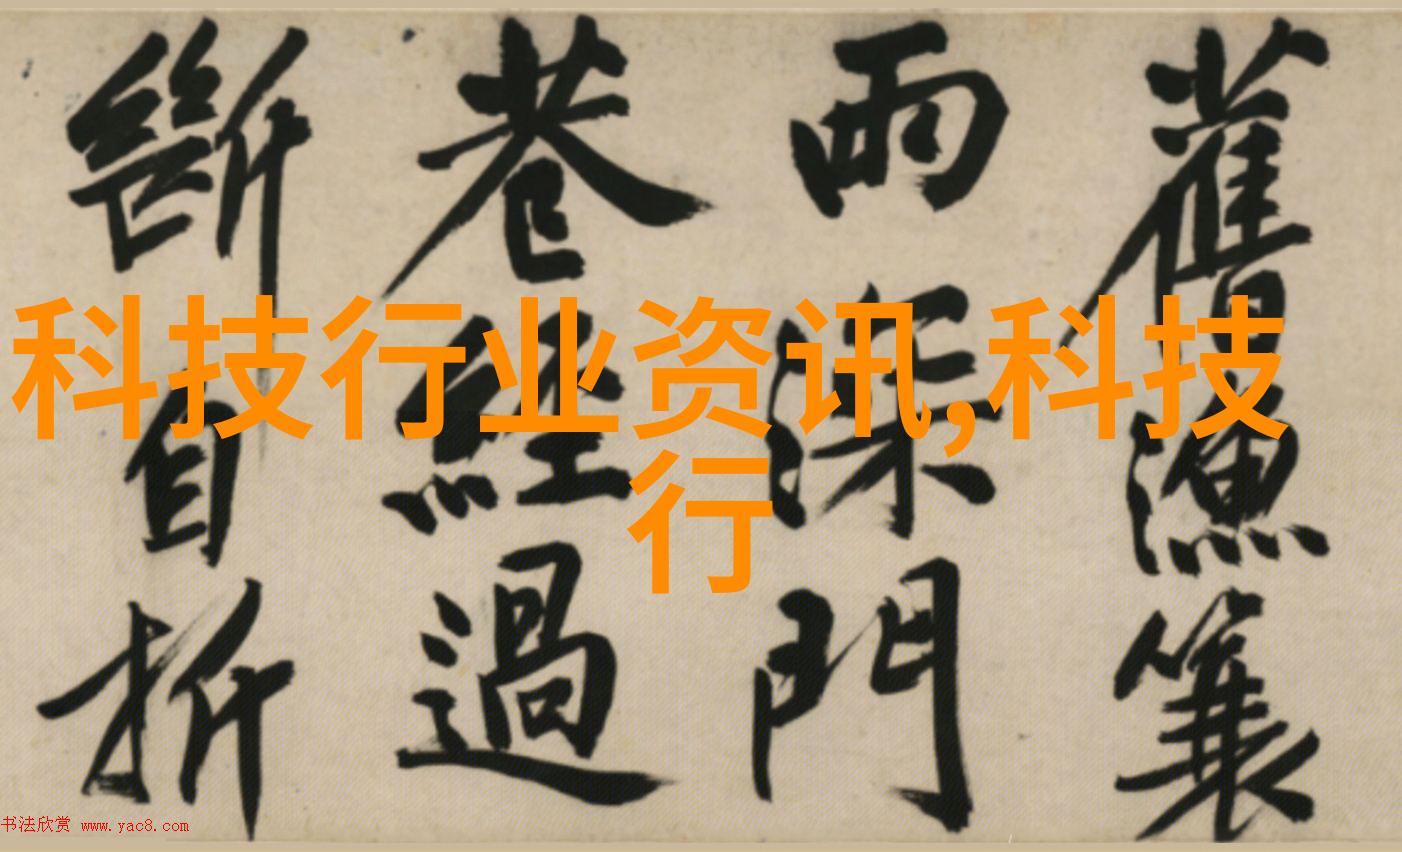 舊漁蓑
雨深門
巷經過
斷自折
科技行业资讯,科技
行
书法欣赏 www.yac8.com